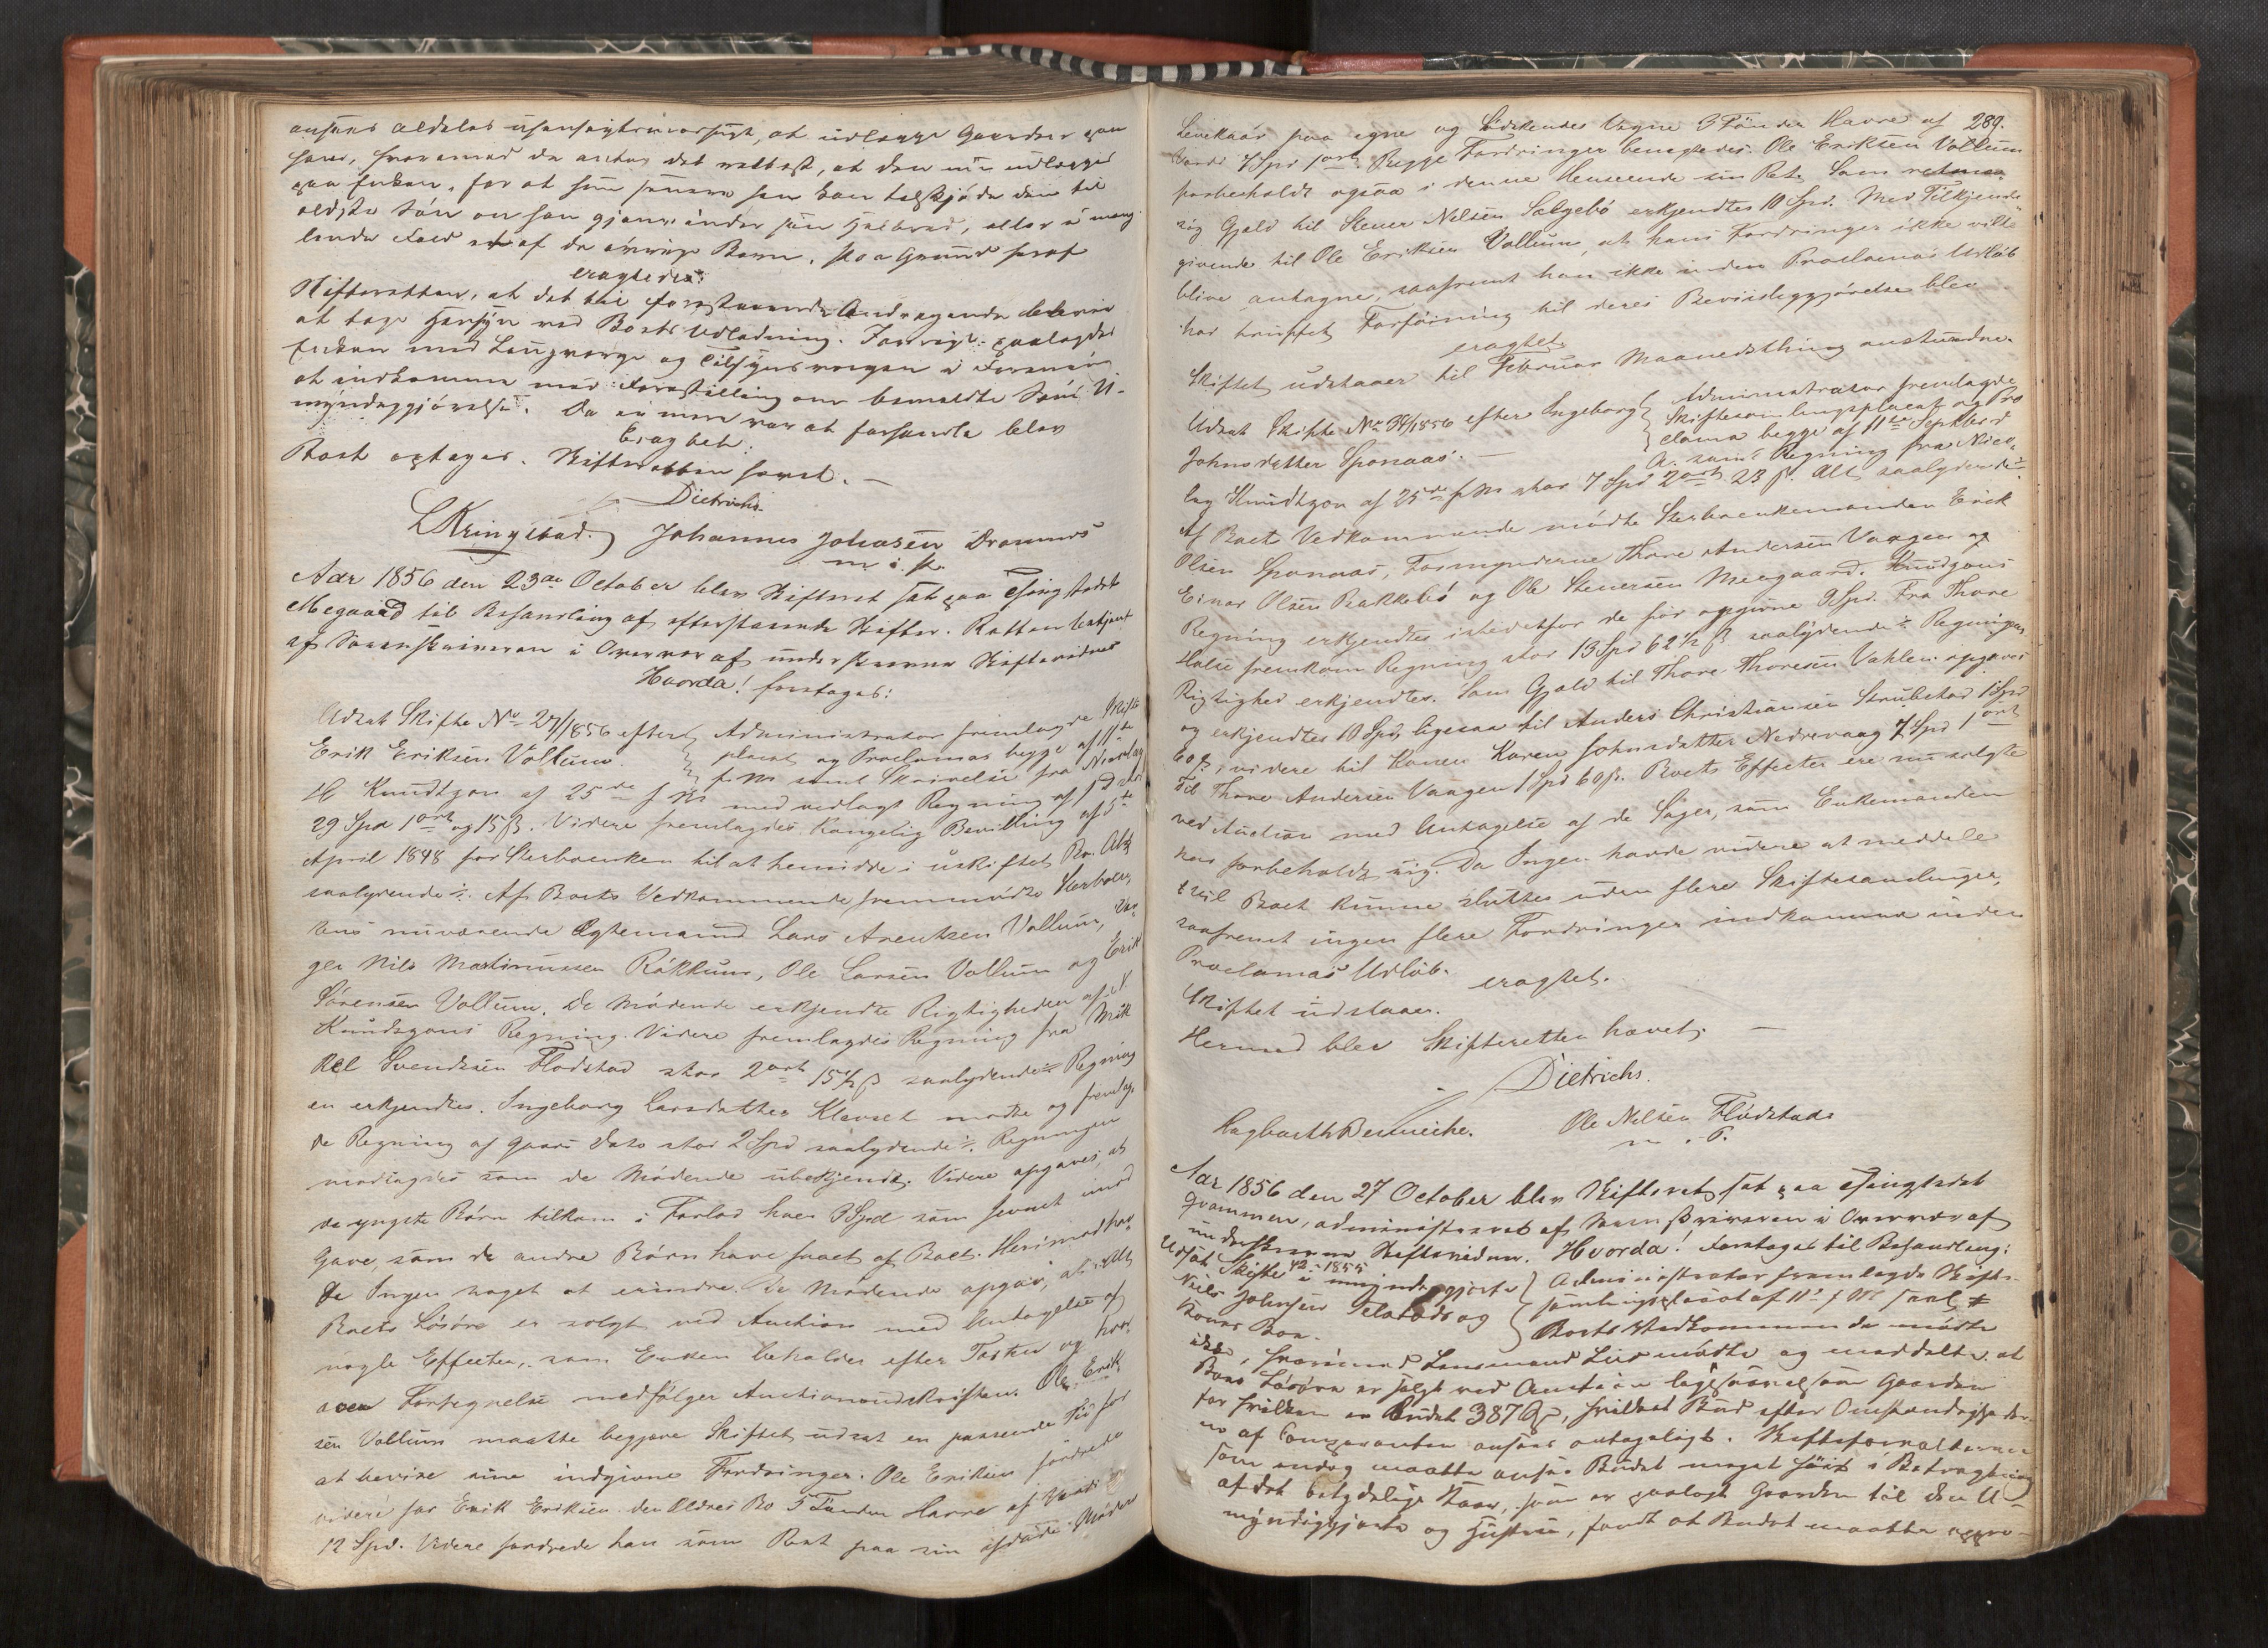 ansees aldeles uhensigtsmæssigt, at udlægge Gaarden paa
ham, hvorimod de anser det rettest, at den nu udlægges
paa Enken, for at hun senere hen kan tilskjøde den til
ældste Søn om han gjøres under sin Helbred, eller i mang-
lende Fald af de øvrige Børn. Paa Grund heraf
eragtedes:
Skifteretten, at det til forestaaende Andragende bliver
at tage Hensyn ved Boets Udlodning. Forøvrigt paalagdes
Enken med Laugværge og Tilsynsværgen i Forening
at indkomme med Forestilling om bemeldte Søns U-
myndiggjørelse. Da ei mere var at forhandle blev
Eragtet:
Boet optages. Skifteretten hævet. —
Dietrichs
L Kringstad. Johannes Johnsen Dromnes
m. i. p.
Aar 1856 den 23de October blev Skifteret sat paa Thingstedet
Megaard til Behandling af efterstaaende Skifter. Retten betjent
af Sorenskriveren i Overvær af underskrevne Skiftevidner
Hvorda! foretages:
Udsat Skifte No 27/1856 efter Administrator fremlagde Skifte
Erik Eriksen Vollum. placat og Proclamas begge af 11te
f. M. samt Skrivelse fra Nicolay
H Knudtzon af 25de f M med vedlagt Regning af s. D. stor
29 Spd 1 ort og 15 ß. Videre fremlagdes Kongelig Bevilling af 5te
April 1848 for Sterboenken til at hensidde i uskiftet Bo. Alt
saalydende ÷. Af Boets Vedkommende fremmødte Sterboen-
kens nuværende Ægtemand Lars Arentsen Vollum, Vær
ger Nils Martinussen Røkkum, Ole Larsen Vollum og Erik
Sørensen Vollum. De Mødende erkjendte Rigtigheden af N.
Knudtzons Regning. Videre fremlagdes Regning fra Mik
kel Svendsen Flodstad stor 2 ort 15 1/2 ß saalydende ÷ Regning
en erkjendtes. Ingeborg Larsdatter Klevset mødte og fremlag-
de Regning af Gaars Dato stor 2 Spd saalydende ÷. Regningen
modtages som de Mødende ubekjendt. Videre opgaves, at
de yngste Børn tilkom i Forlod hver 3 Spd som Hevnet imod
Gave, som de andre Børn have faaet af Boet. Herimod hav
de Ingen noget at erindre. De Mødende opgav, at alt
Boets Løsøre er solgt ved Auction med Undtagelse af
nogle Effecter, som Enken beholder efter Taxten og hvor
over Fortegnelse medfølger Auctionsudskriften. Ole Erik
sen Vollum maatte begjære Skiftet udsat en passende Tid for
at bevise sine indgivne Fordringer. Ole Eriksen fordrede
videre for Erik Eriksen den Ældres Bo 5 Tønder Havre af Værdi
12 Spd. Videre fordrede han som Rest paa sin afdøde Moders
289.
Levekaar paa egne og Sødskendes Vegne 3 Tønder Havre af
Værd 7 Spd 1 ort. Begge Fordringer benegtedes. Ole Eriksen Vollum
forbeholdt ogsaa i denne Henseende sin Ret. Som
sig Gjeld til Stener Nelsen Sælgebø erkjendtes 10 Spd. Med Tilkjende
givende til Ole Eriksen Vollum, at hans Fordringer ikke ville
blive antagne, saafremt han ikke inden Proclamas Udløb
har truffet Forføining til deres Beviisliggjørelse blev
eragtet:
Skiftet udstaaer til Februar Maanedsthing anstundne.
Udsat Skifte No 34/1856 efter Ingeborg Administrator fremlagde
Johnsdatter Sponaas. — Skiftesamlingsplacat og Pro
clama begge af 11te Septbr d
A. samt Regning fra Nico-
lay Knudtzon af 25de f M stor 7 Spd 2 ort 23 ß. Alt saalydende ÷
Af Boets Vedkommende mødte Sterboenkemanden Erik
Olsen Sponaas, Formynderne Thore Andersen Vaagen og
Einar Olsen Bakkebø og Ole Stenersen Meegaard. Knudtzons
Regning erkjendtes istedetfor de før opgivne 9 Spd. Fra Thore
Halse fremkom Regning stor 13 Spd 62 1/2 ß saalydende ÷ Regningens
Rigtighed erkjendtes. Som Gjeld til Thore Thoresen Vaklen opgaves
og erkjendtes 10 Spd, ligesaa til Anders Christiansen Strubstad 1 Spd
60 ß, videre til Konen Karen Johnsdatter Nedrevaag 7 Spd 1 ort
Til Thore Andersen Vaagen 1 Spd 60 ß. Boets Effecter ere nu solgte
ved Auction med Undtagelse af de Sager, som Enkemanden
har forbeholdt sig. Da Ingen havde videre at meddele
vil Boet kunne sluttes uden flere Skiftesamlinger,
saafremt ingen flere Fordringer indkomme inden
Proclamas Udløb. eragtet.
Skiftet udstaaer.
Hermed blev Skifteretten hævet. —
Dietrichs.
Hagbarth Berniche. Ole Nelsen Flødstad
m. i. P.
Aar 1856 den 27 October blev Skifteret sat paa Thingstedet
Grammen, administreret af Sorenskriveren i Overvær af
underskrevne Skiftevidner. Hvorda! Foretaget til Behandling:
Udsat Skifte 42-1855 i umyndiggjorte Administrator fremlagde Skifte-
Neils Johnsen Telstads og samlingsplacat af 11te f M saal ÷
Kones Boe. Boets Vedkommende mødte
ikke, hvorimod Lensmand Lied mødte og meddelte at
Boets Løsøre er solgt ved Auction ligesaavelsom Gaarden
for hvilken er budet 387 Spd, hvilket Bud efter Omstændigheder-
ne af Comparenten ansees antageligt. Skifteforvalteren
som endog maatte anse Budet meget høit i Betragtning
af det betydelige Kaar, som er paalagt Gaarden til den U-
myndiggjorte og Hustru, fandt at Budet maatte appro-